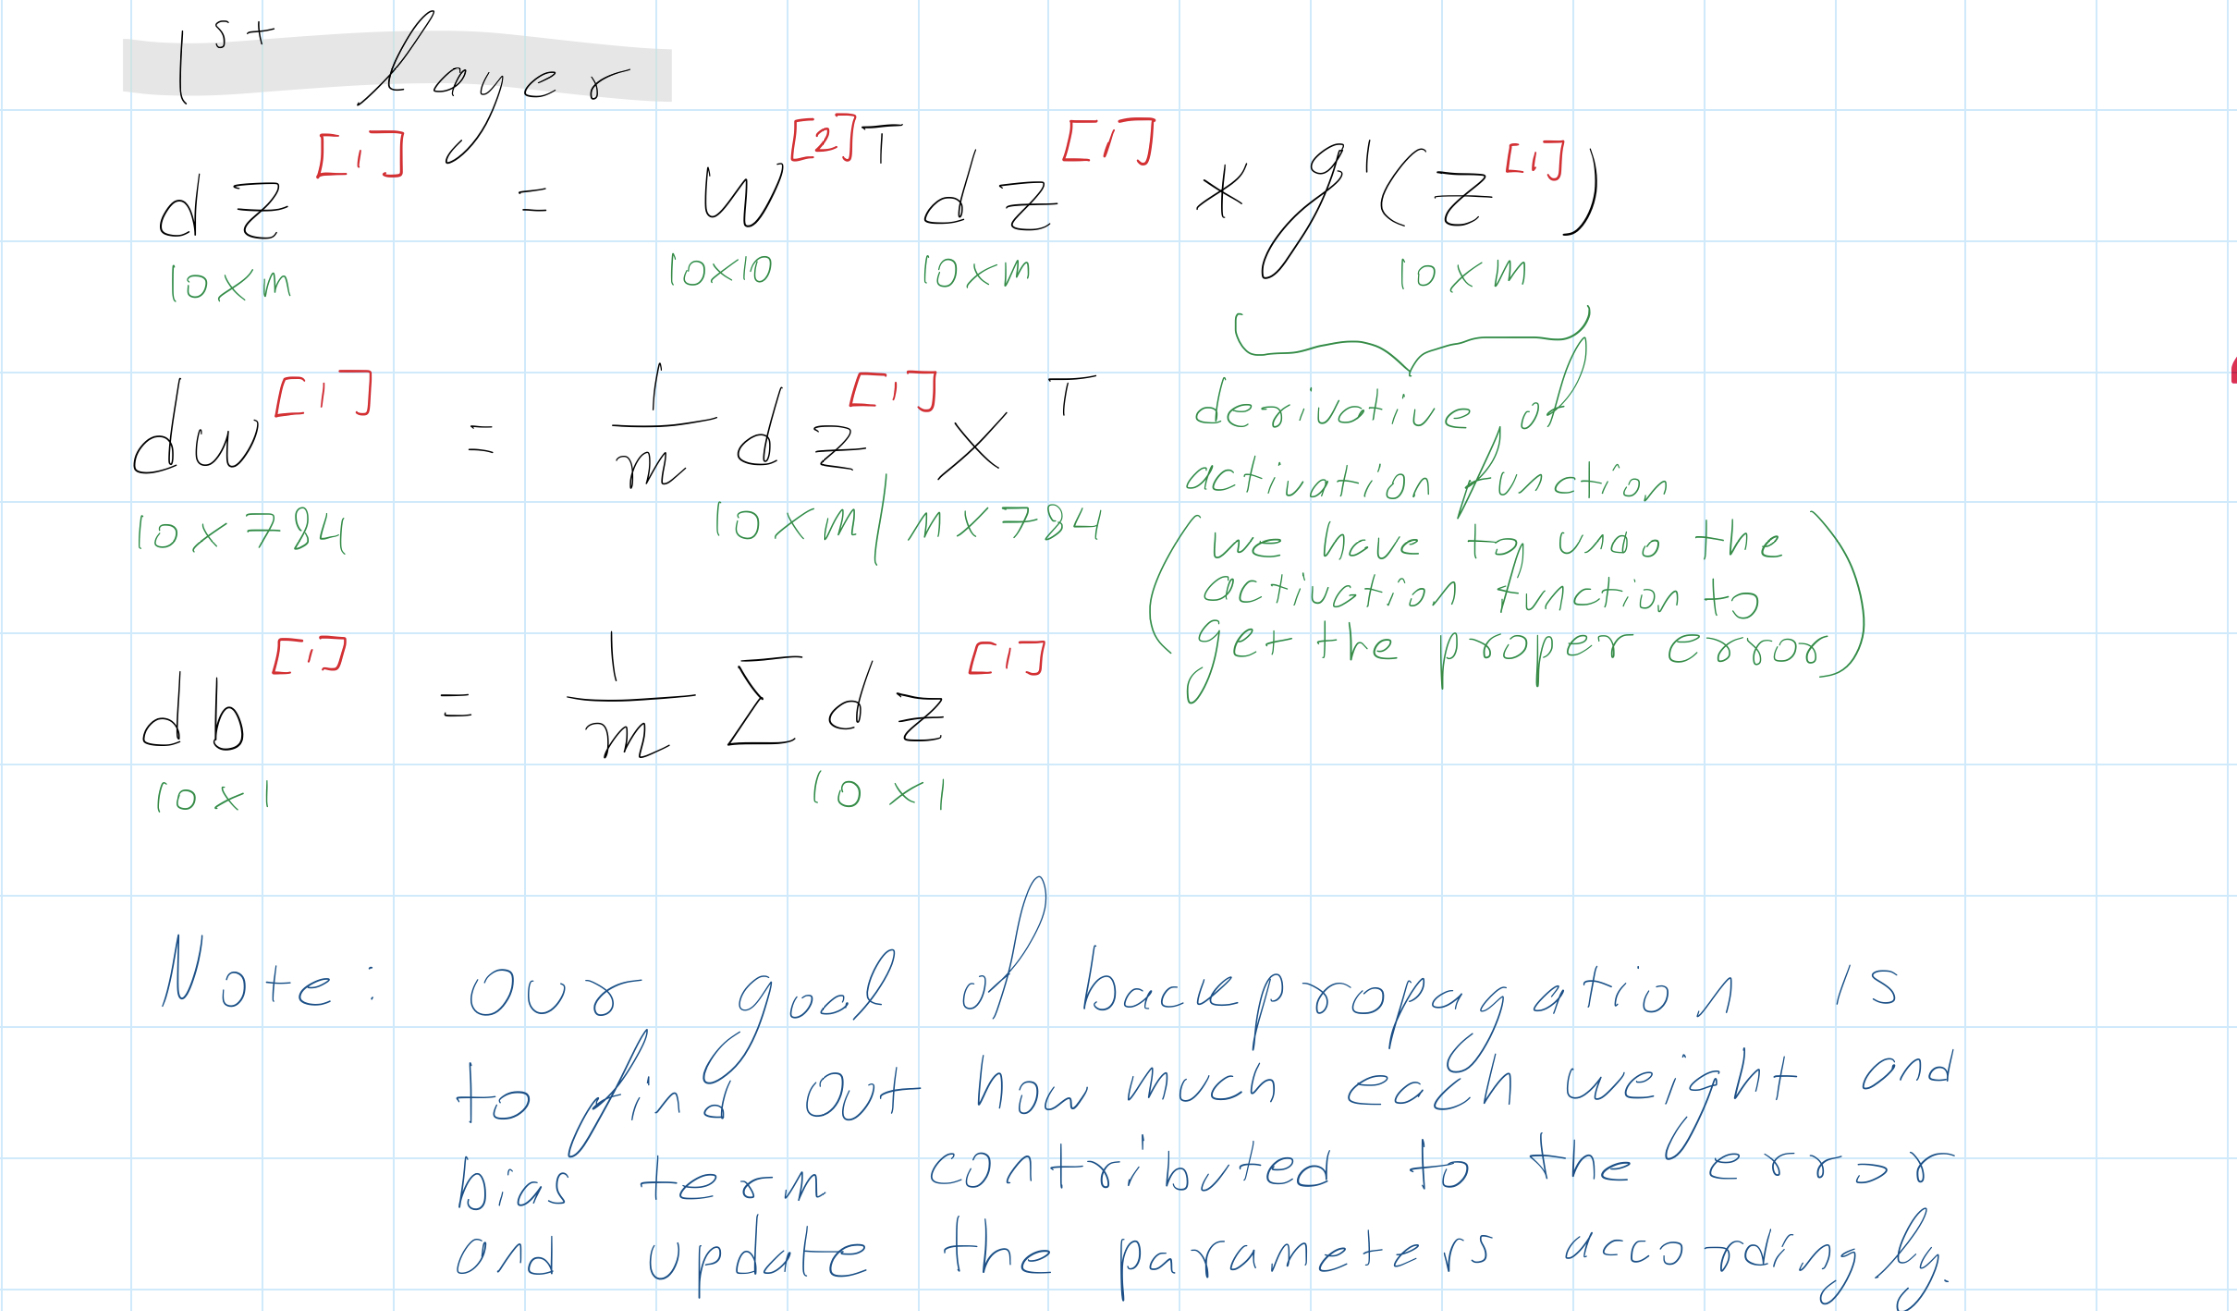 1st layer
dz[1] = w[2]T dz[1] * g'(z[1])
10xm 10x10 10xm 10xm
dw[1] = 1/m dz[1] X T
10x784 10xm | mx784
derivative of
activation function
(we have to undo the
activation function to
get the proper error)
db[1] = 1/m Σ dz[1]
10x1 10x1
Note: our goal of backpropagation is
to find out how much each weight and
bias term contributed to the error
and update the parameters accordingly.